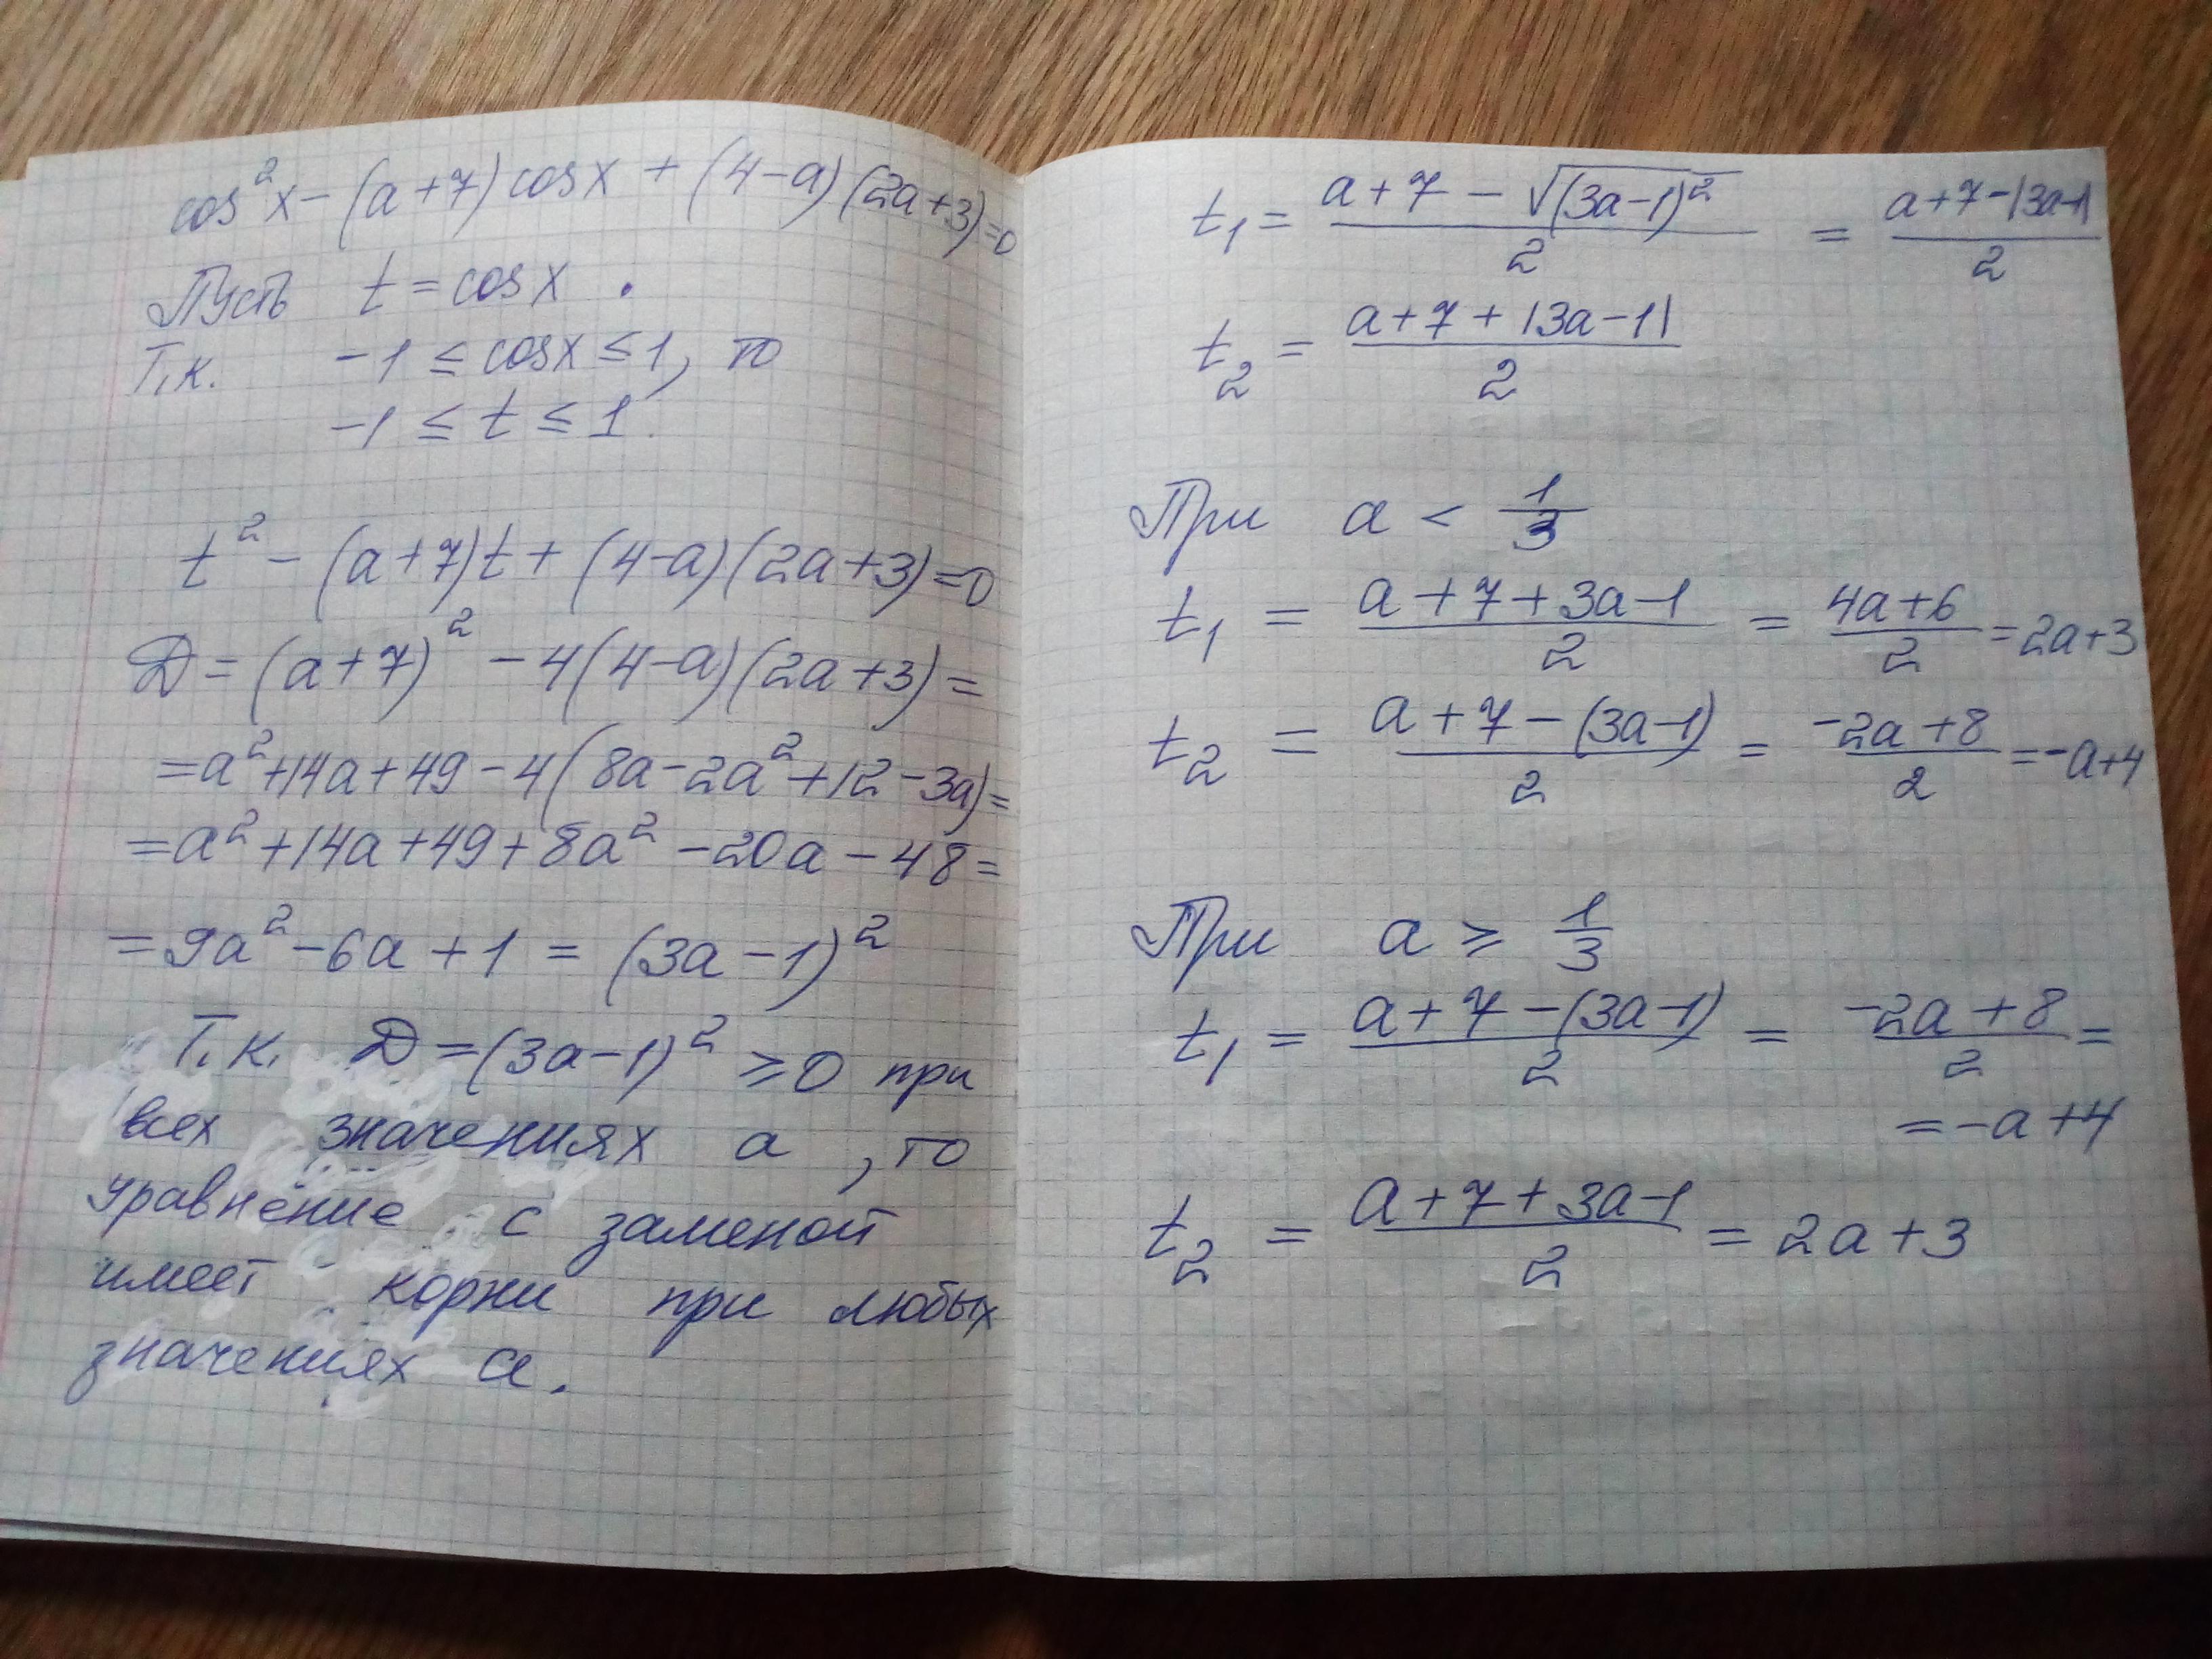 cos²x − (a+7)cosx + (4−a)(2a+3)=0
Пусть t = cosx.
Т.к. −1 ≤ cosx ≤ 1, то
−1 ≤ t ≤ 1.
t² − (a+7)t + (4−a)(2a+3)=0
Д = (a+7)² − 4(4−a)(2a+3) =
= a²+14a+49−4(8a−2a²+12−3a)=
= a²+14a+49+8a²−20a−48=
= 9a²−6a+1 = (3a−1)²
Т.к. Д=(3a−1)² ⩾0 при
всех значениях a, то
уравнение с заменой
имеет корни при любых
значениях a.
t₁ = (a+7−√(3a−1)²)/2 = (a+7−|3a−1|)/2
t₂ = (a+7+|3a−1|)/2
При a < 1/3
t₁ = (a+7+3a−1)/2 = (4a+6)/2 = 2a+3
t₂ = (a+7−(3a−1))/2 = (−2a+8)/2 = −a+4
При a ⩾ 1/3
t₁ = (a+7−(3a−1))/2 = (−2a+8)/2 =
= −a+4
t₂ = (a+7+3a−1)/2 = 2a+3